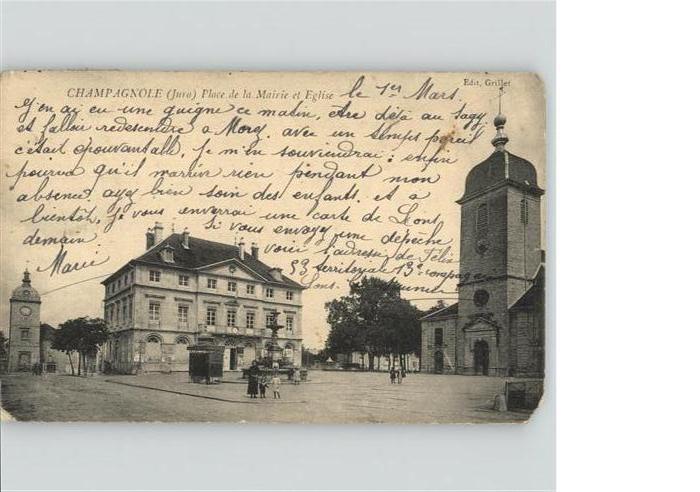 Edit. Grillet
CHAMPAGNOLE (Jura) Place de la Mairie et Eglise
le 1er Mars.
J'en ai eu une guigne ce matin, être déjà au
et falloir redesendre a Morez, avec un temps pareil
c'était épouvantable, Je m'en souviendrai; enfin
pourvu qu'il m'arrive rien pendant mon
absence ayez bien soin des enfants, et a
bientôt, Je vous enverrai une carte de Lons
demain
Si vous envoyez une dépêche
voici l'adresse de Félix
Marie
53 territoyale 13e compagnie
Lons